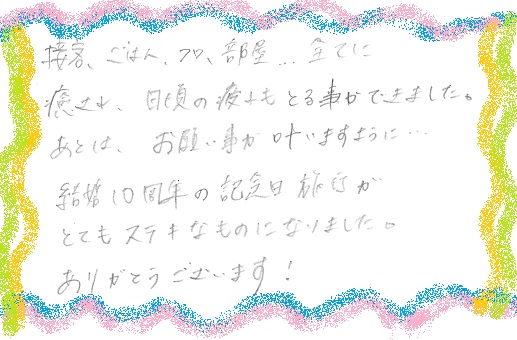 接客、ごはん、フロ、部屋…全てに
癒され、日頃の疲れもとる事ができました。
あとは、お願い事が叶いますように…
結婚10周年の記念日旅行が
とてもステキなものになりました。
ありがとうございます!